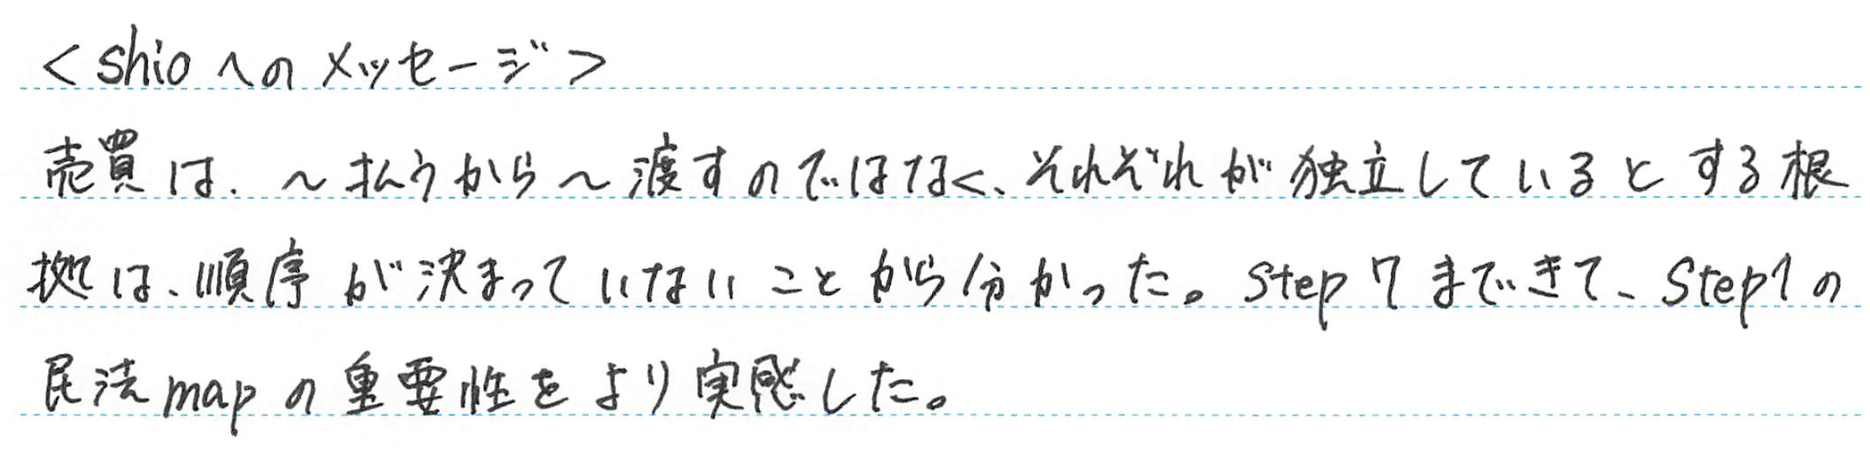 <shioへのメッセージ>
売買は、〜払うから〜渡すのではなく、それぞれが独立しているとする根
拠は、順序が決まっていないことから分かった。Step7まできて、Step1の
民法mapの重要性をより実感した。